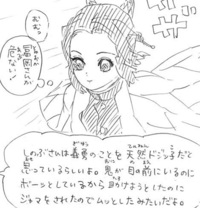 冨岡さんが
危ない!
しのぶさんは義勇のことを天然ドジっ子だと
思っているらしいよ。鬼が目の前にいるのに
ボーっとしているから助けようとしたのに
ジャマをされたのでムッとしたみたいだよ。